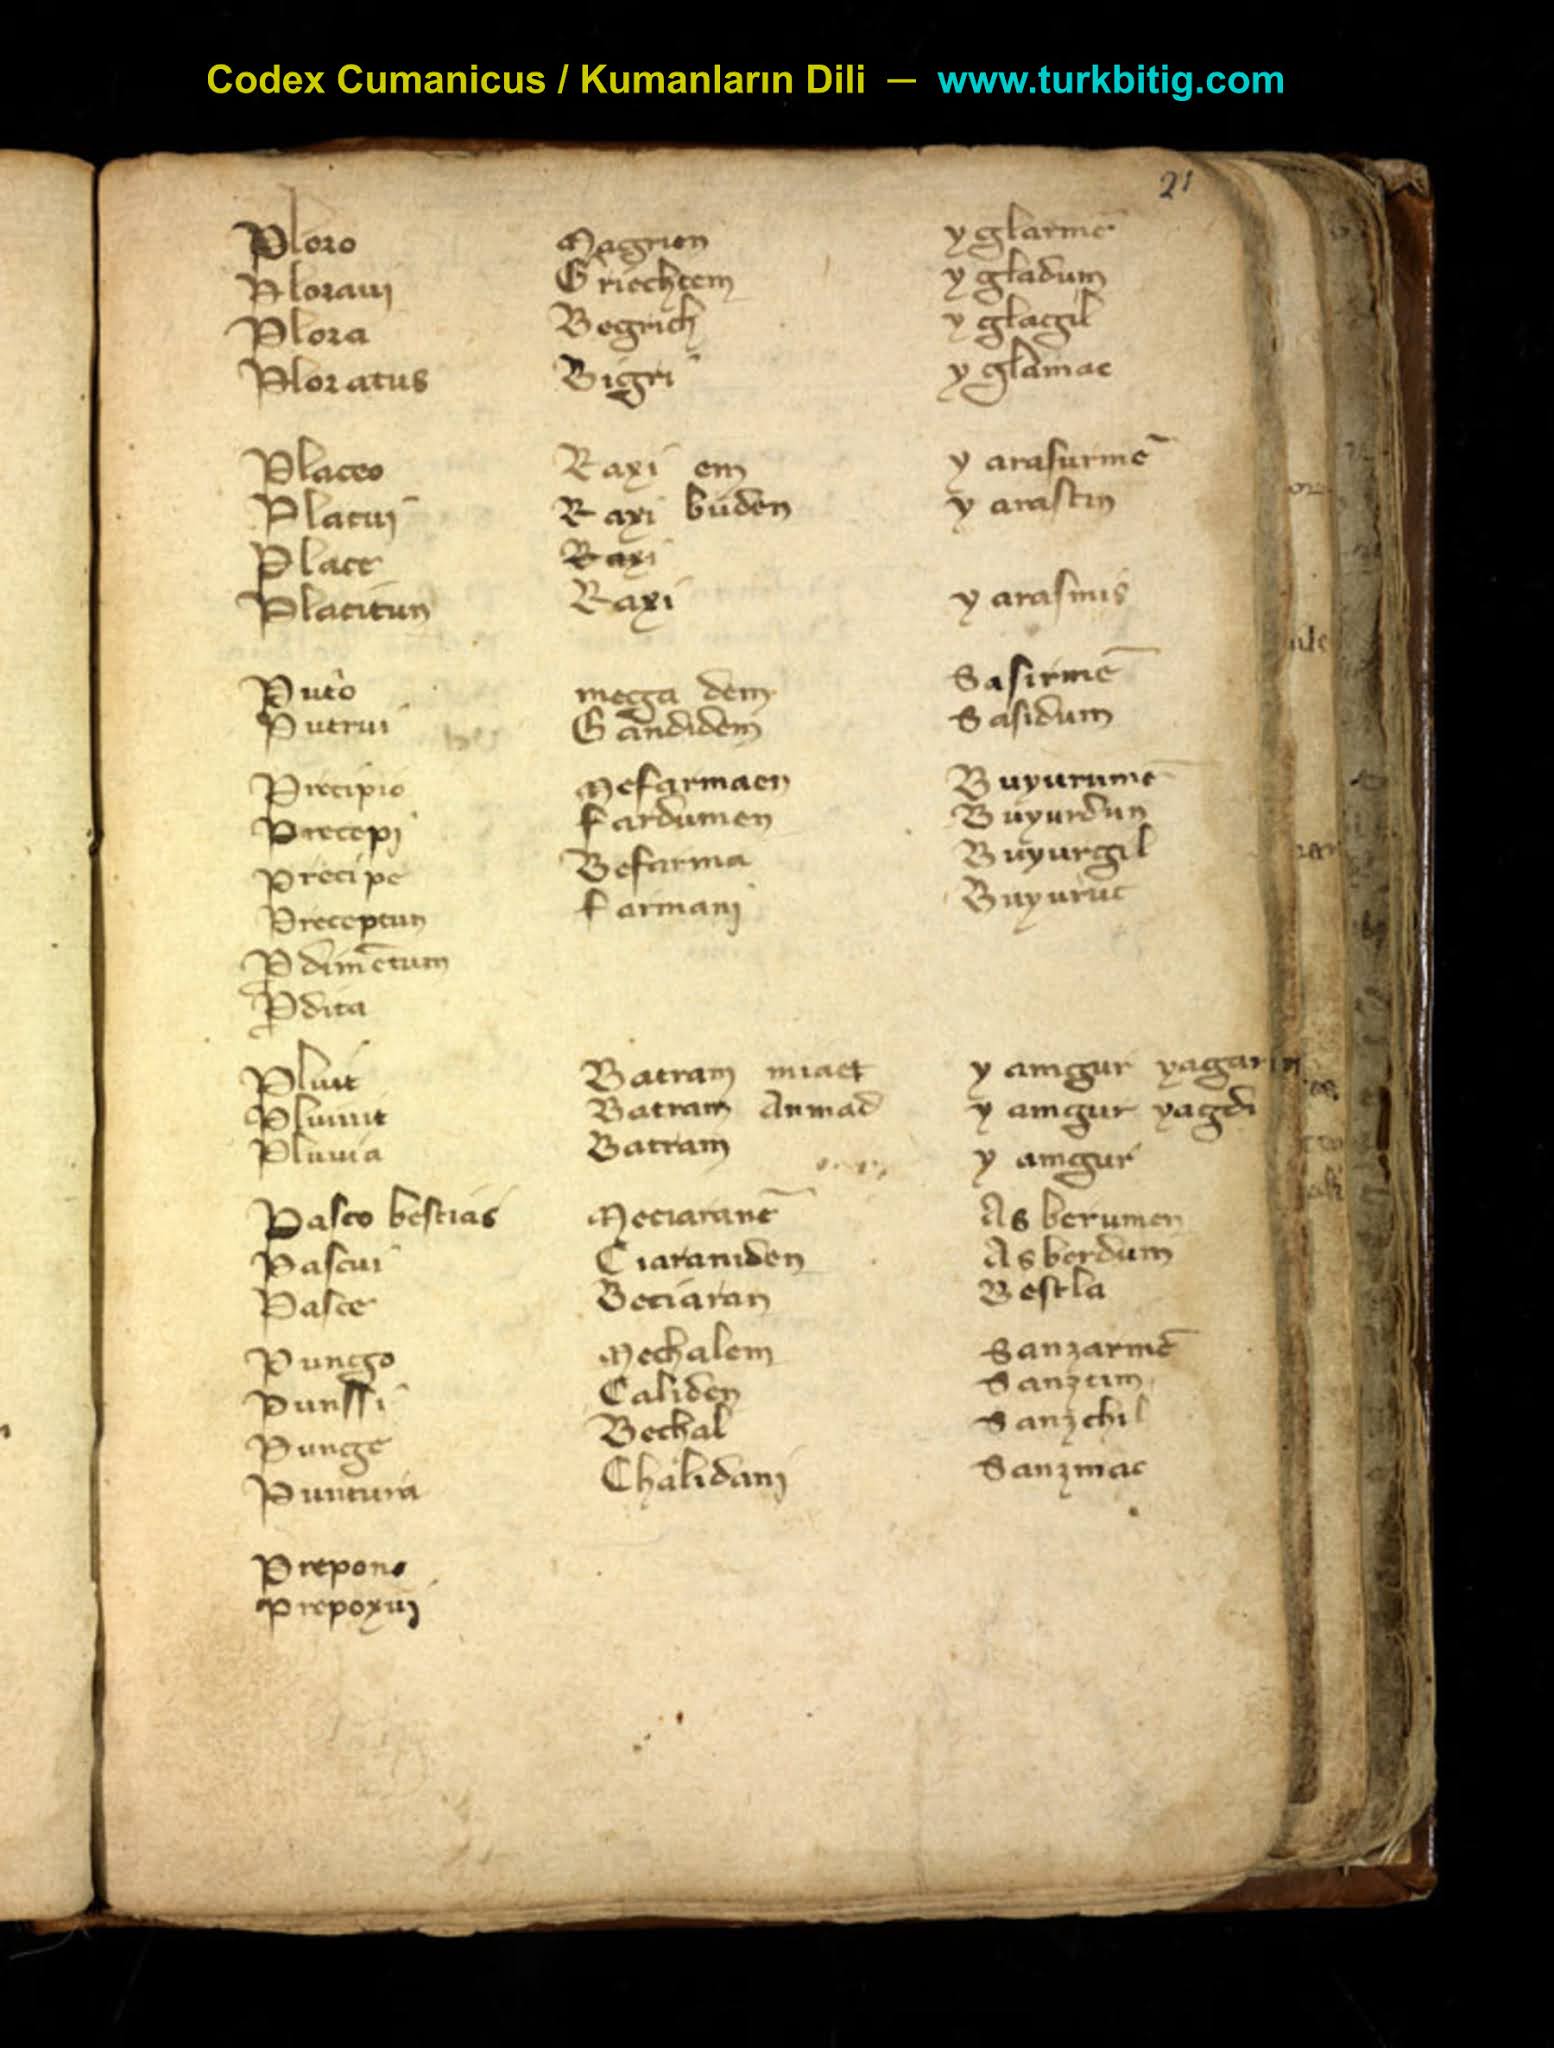 Codex Cumanicus / Kumanların Dili — www.turkbitig.com
21
Ploro Magrion yglarmē
Ploraui Griechtem ygladum
Plora Begrich yglagil
Ploratus Bigri yglamac
Placeo Raxi em yarasurmē
Placui Raxi buden yarastin
Place Raxi
Placitun Raxi yarasmis
Puteo mecga dem Sasirmē
Putrui Gandidem Sasidum
Precipio Mefarmaen Buyurumē
Precepi fardumen Buyurdun
Precipe Befarma Buyurgil
Preceptun farmanj Buyuruc
Pdimētum
Pdita
Pluit Batram miaet yamgur yagarin
Pluuuit Batram Anmad yamgur yagdi
Pluuia Batram yamgur
Pasco bestias Meciaranē As berumen
Pascui Ciaraniden As berdum
Pasce Beciaran Bestla
Pungo Mechalem Sanzarmē
Punssi Caliden Sanztim
Punge Bechal Sanzchil
Puntura Chalidanj Sanzmac
Prepono
Prepoxuj